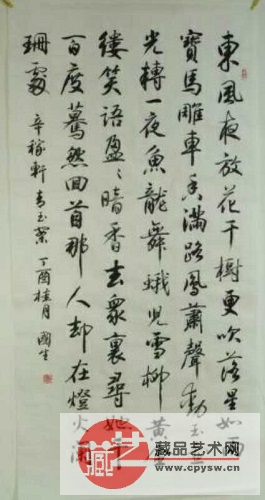 東風夜放花千樹更吹落星如雨
寶馬雕車香滿路鳳蕭聲動玉壺
光轉一夜魚龍舞蛾兒雪柳黃金
縷笑語盈〻暗香去眾裏尋她千
百度驀然回首那人却在燈火闌
珊處
辛稼軒青玉案 丁酉桂月 國生
藏品艺术网
www.cpysw.cn